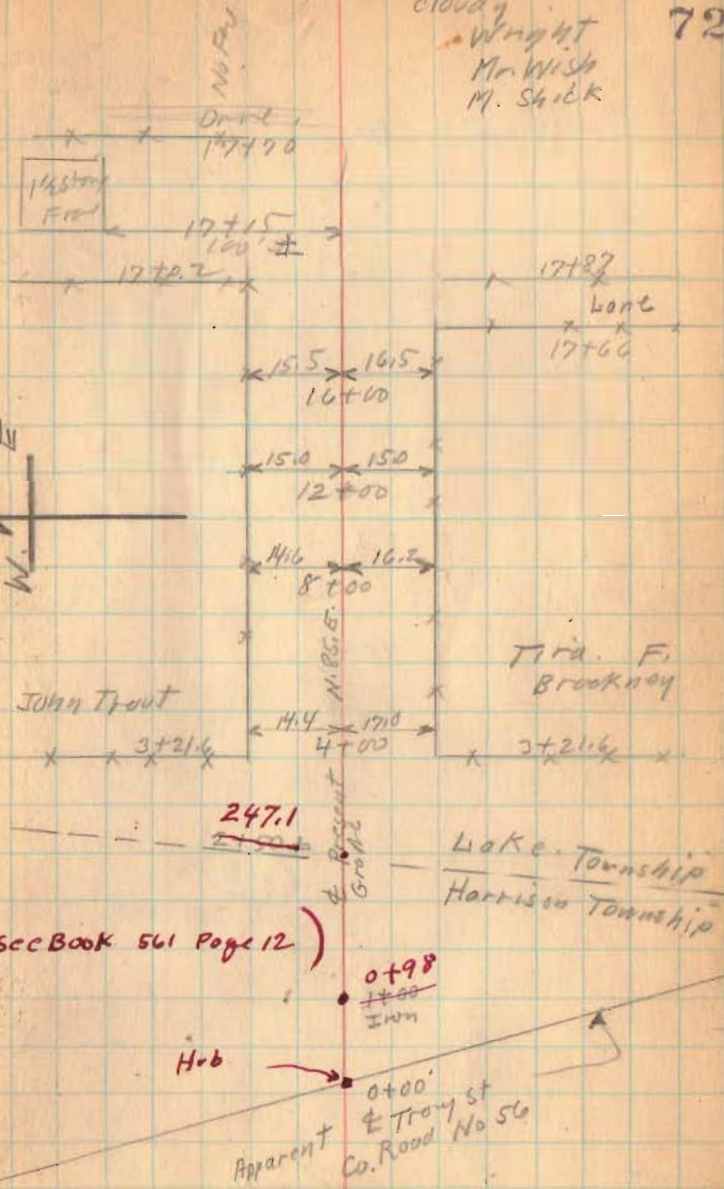 cloudy
72
Wright
Mr. Wish
M. Shick
No Fen
Drive
17+70
1½ Story
Fra
17+15
100' ±
17+0.2
17+87
Lane
17+66
15.5 16.5
16+00
15.0 15.0
12+00
E
N
W.
14.6 16.2
8+00
N.86.E.
Tira. F.
Brookney
John Trout
14.4 17.0
4+00
3+21.6
3+21.6
247.1
℄ Present
Grade
Lake Township
Harrison Township
See Book 561 Page 12)
0+98
1+00
Iron
Hub
0+00
Apparent ℄ Troy St
Co. Road No 56